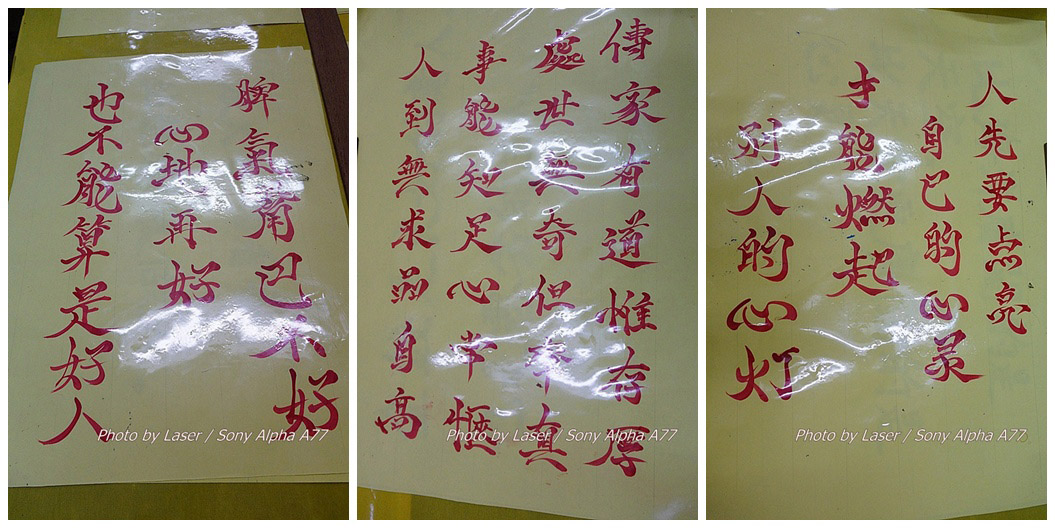 脾氣嘴巴不好
心地再好
也不能算是好人
Photo by Laser / Sony Alpha A77
傳家有道惟存厚
處世無奇但率真
事能知足心常愜
人到無求品自高
Photo by Laser / Sony Alpha A77
人先要点亮
自己的心灵
才能燃起
别人的心灯
Photo by Laser / Sony Alpha A77